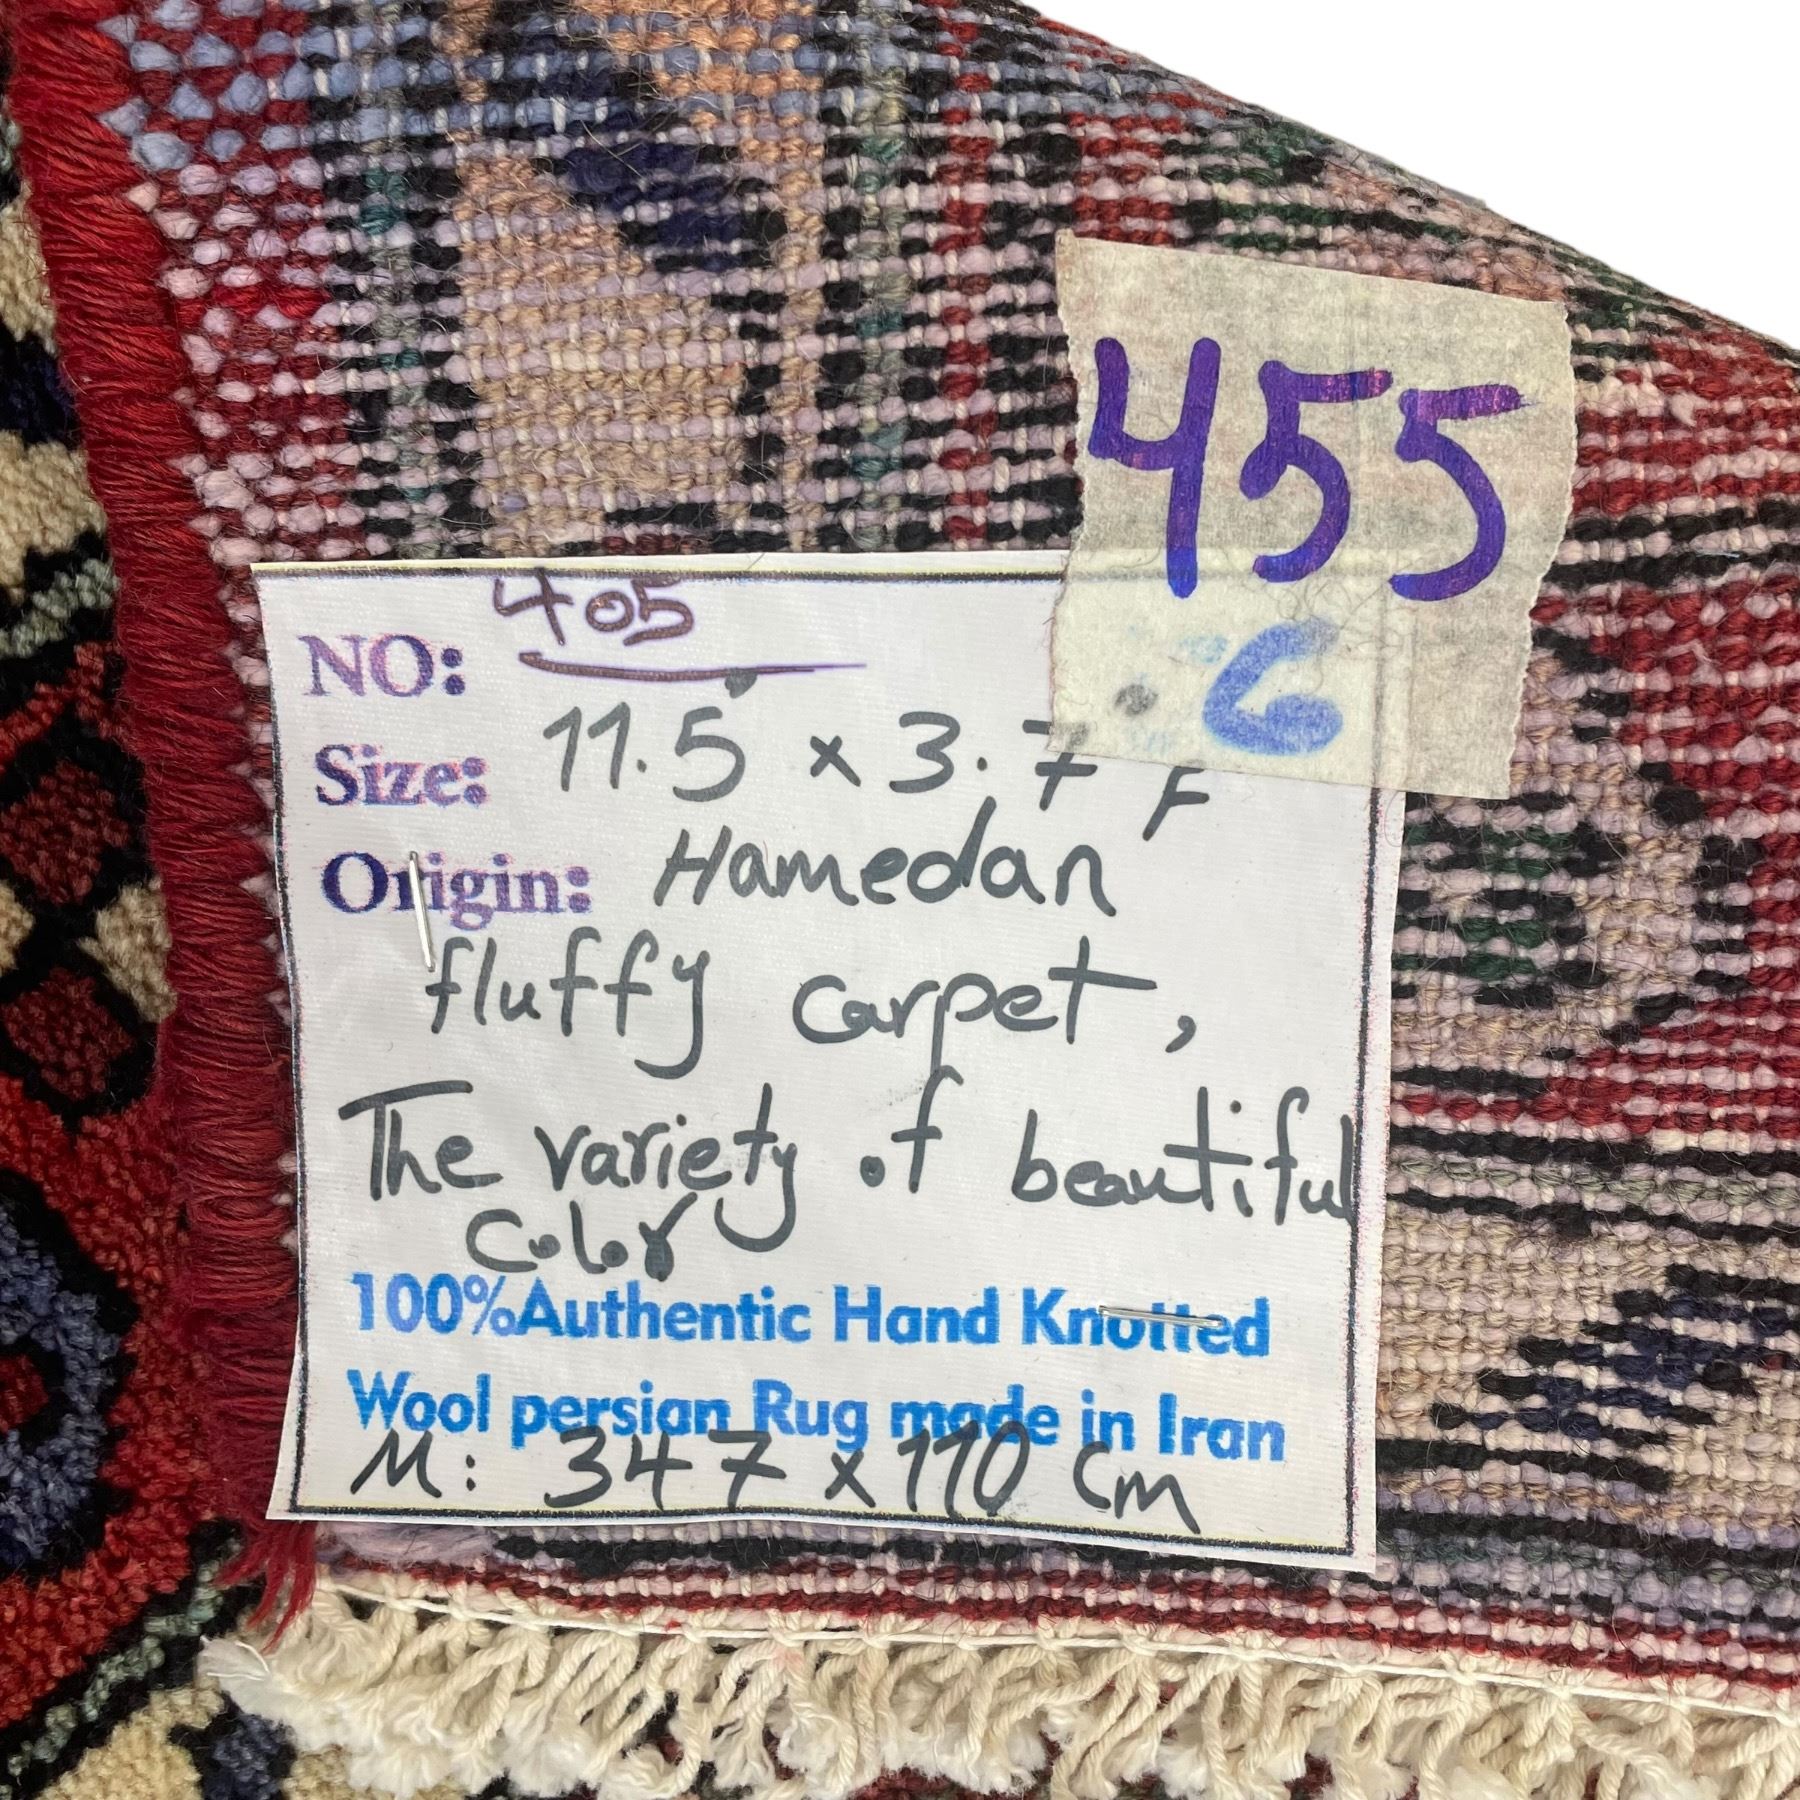 455
6
405
NO:
Size: 11.5 x 3.7 F
Origin: Hamedan
fluffy carpet,
The variety of beautiful
Color
100%Authentic Hand Knotted
Wool persian Rug made in Iran
M: 347 x 110 cm